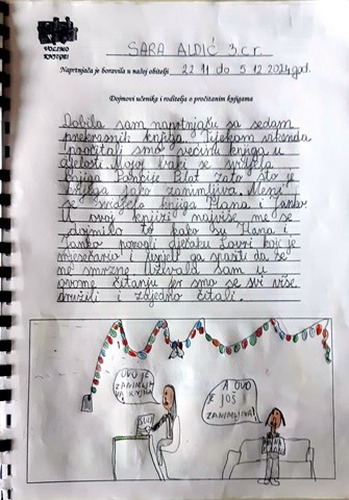 VOLIMO
KNJIGE!
SARA ALDIĆ 3.c r.
Naprtnjača je boravila u našoj obitelji 22. 11 do 5. 12. 2024. god.
Dojmovi učenika i roditelja o pročitanim knjigama
Dobila sam naprtnjaču sa sedam
prekrasnih knjiga. Tijekom vikenda
pročitali smo većinu knjiga u
cijelosti. Mojoj baki se svidjela
knjiga Poncije Pilat zato što je
knjiga jako zanimljiva. Meni
se svidjela knjiga Hana i Janko.
U ovoj knjizi najviše me se
dojmilo to kako su Hana i
Janko pomogli dječaku Lovri koji je
mjesečario i uspjeli ga spasiti da se
ne smrzne. Uživala sam u
ovome čitanju jer smo se svi više
družili i zajedno čitali.
OVO JE
KNJIGA
A OVO
JE JOŠ
ZANIMLJIVIJA!